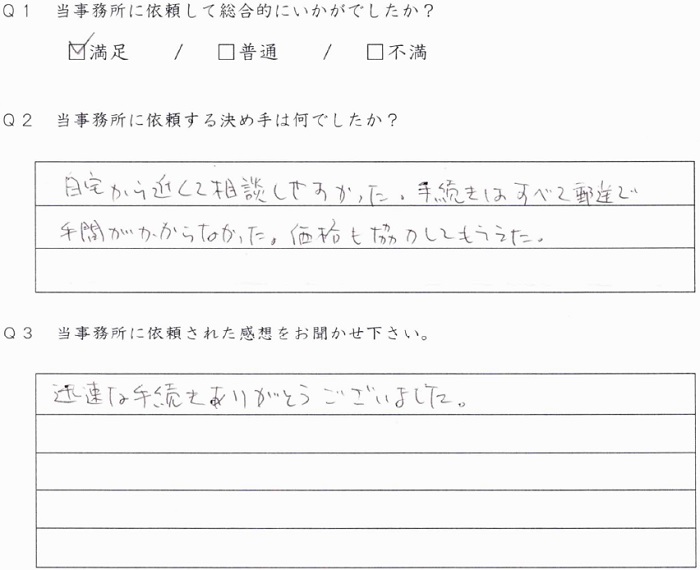 Q1 当事務所に依頼して総合的にいかがでしたか?
☑満足 / □普通 / □不満
Q2 当事務所に依頼する決め手は何でしたか?
自宅から近くて相談しやすかった。手続きはすべて郵送で
手間がかからなかった。価格も協力してもらえた。
Q3 当事務所に依頼された感想をお聞かせ下さい。
迅速な手続きありがとうございました。